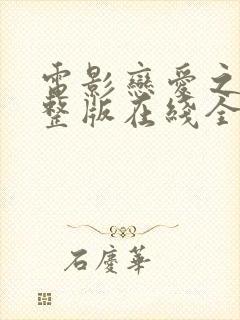 電影戀愛之
整版在綫全
石慶華